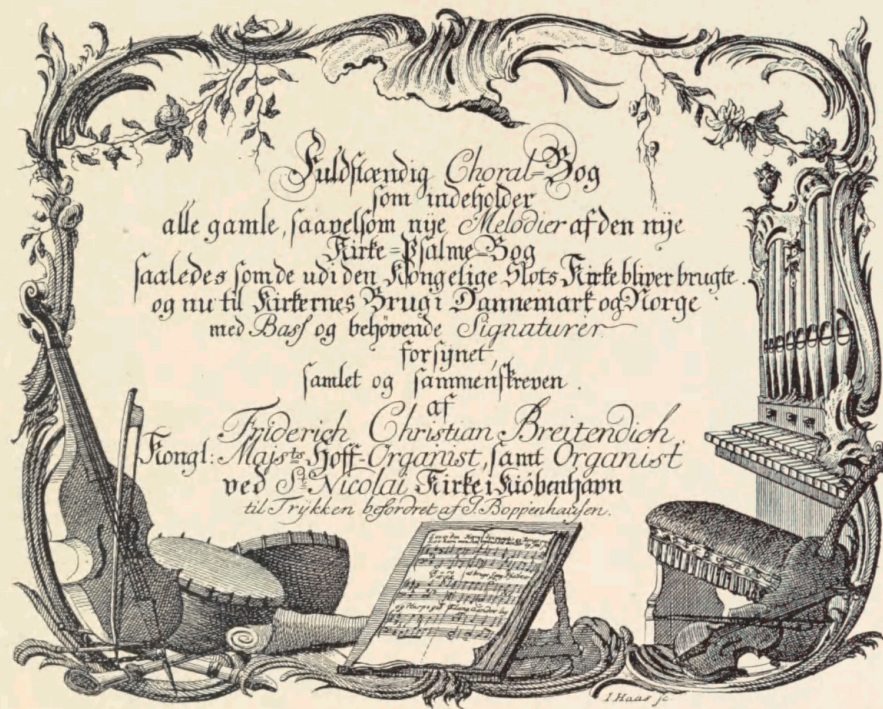 Fuldstændig Choral=Bog
som indeholder
alle gamle, saavelsom nye Melodier af den nye
Kirke=Psalme=Bog
saaledes som de udi den Kongelige Slots Kirke bliver brugte.
og nu til Kirkernes Brug i Dannemark og Norge
med Bass og behøvende Signaturer
forsynet,
samlet og sammenskreven.
af
Friderich Christian Breitendich,
Kongl: Majsts Hoff-Organist, samt Organist
ved St Nicolai Kirke i Kiöbenhavn
til Trykken befordret af J. Boppenhausen.
og Harpe
I Haas sc.